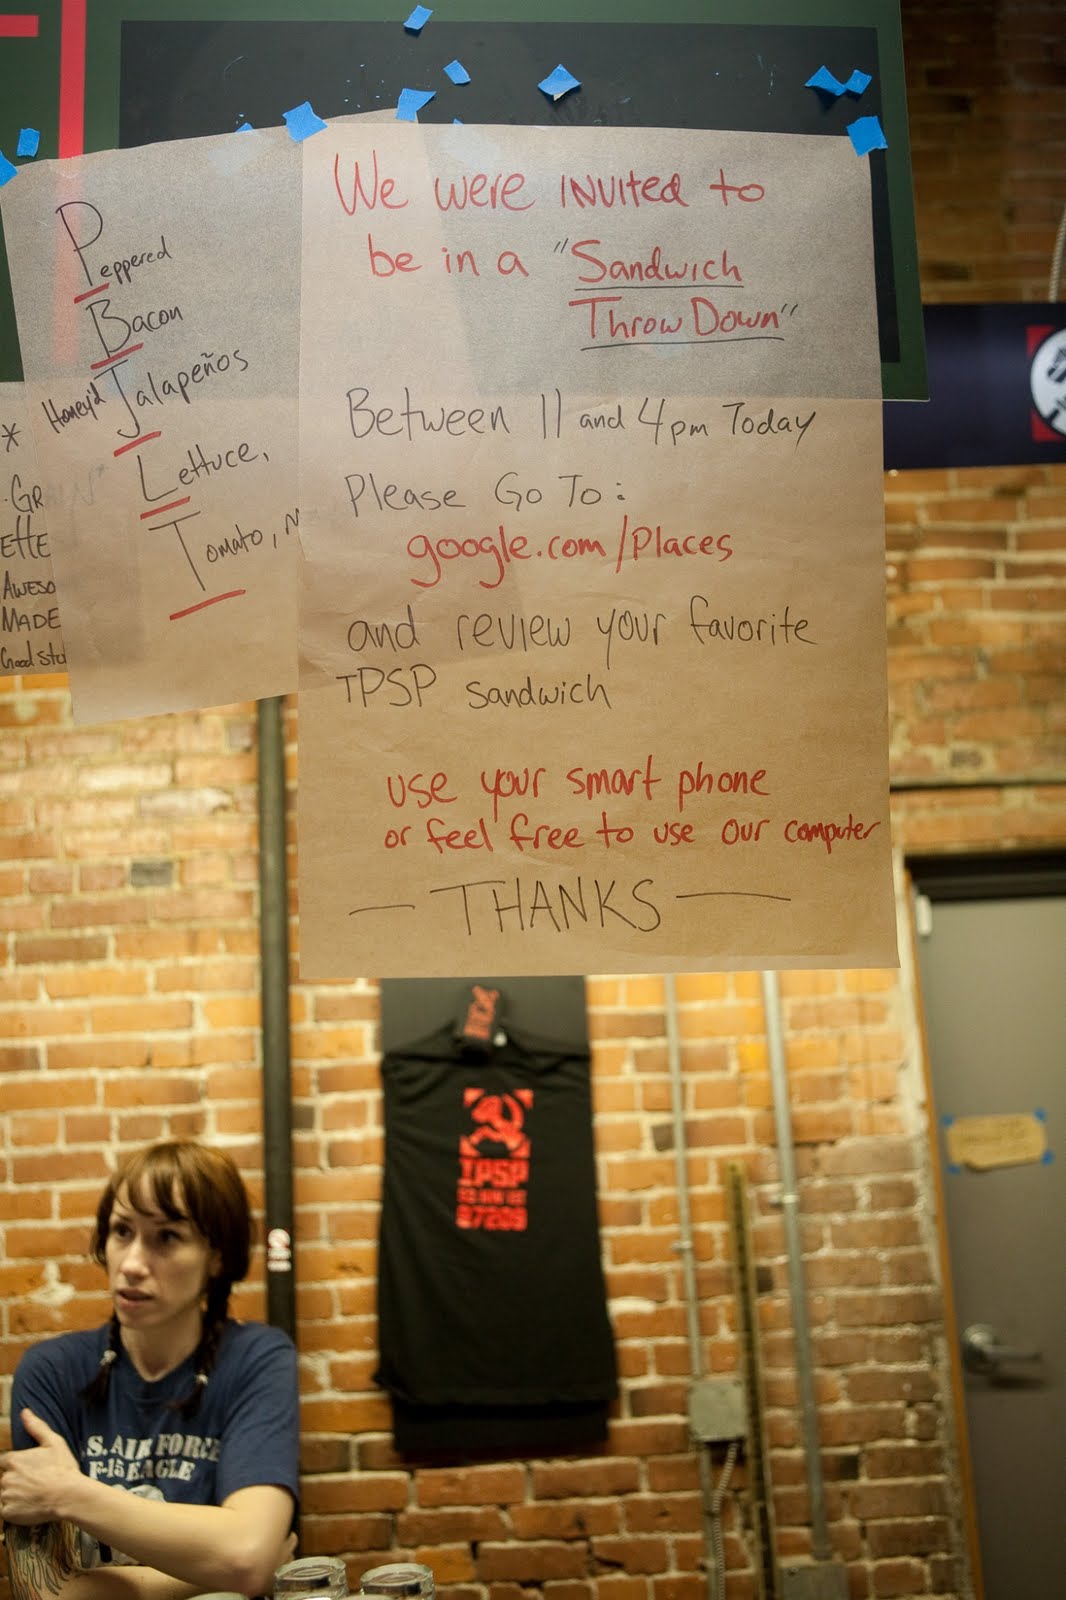 We were INVITED to
be in a "Sandwich
Throw Down"
Between 11 and 4pm Today
Please Go To:
google.com/Places
and review your favorite
TPSP sandwich
use your smart phone
or feel free to use our computer
— THANKS —
Peppered
Bacon
Honey'd Jalapeños
Lettuce,
Tomato,
*
GR
Ette
AWESO
MADE
Good stu
TPSP
97209
S. AIR FORCE
F-15 EAGLE